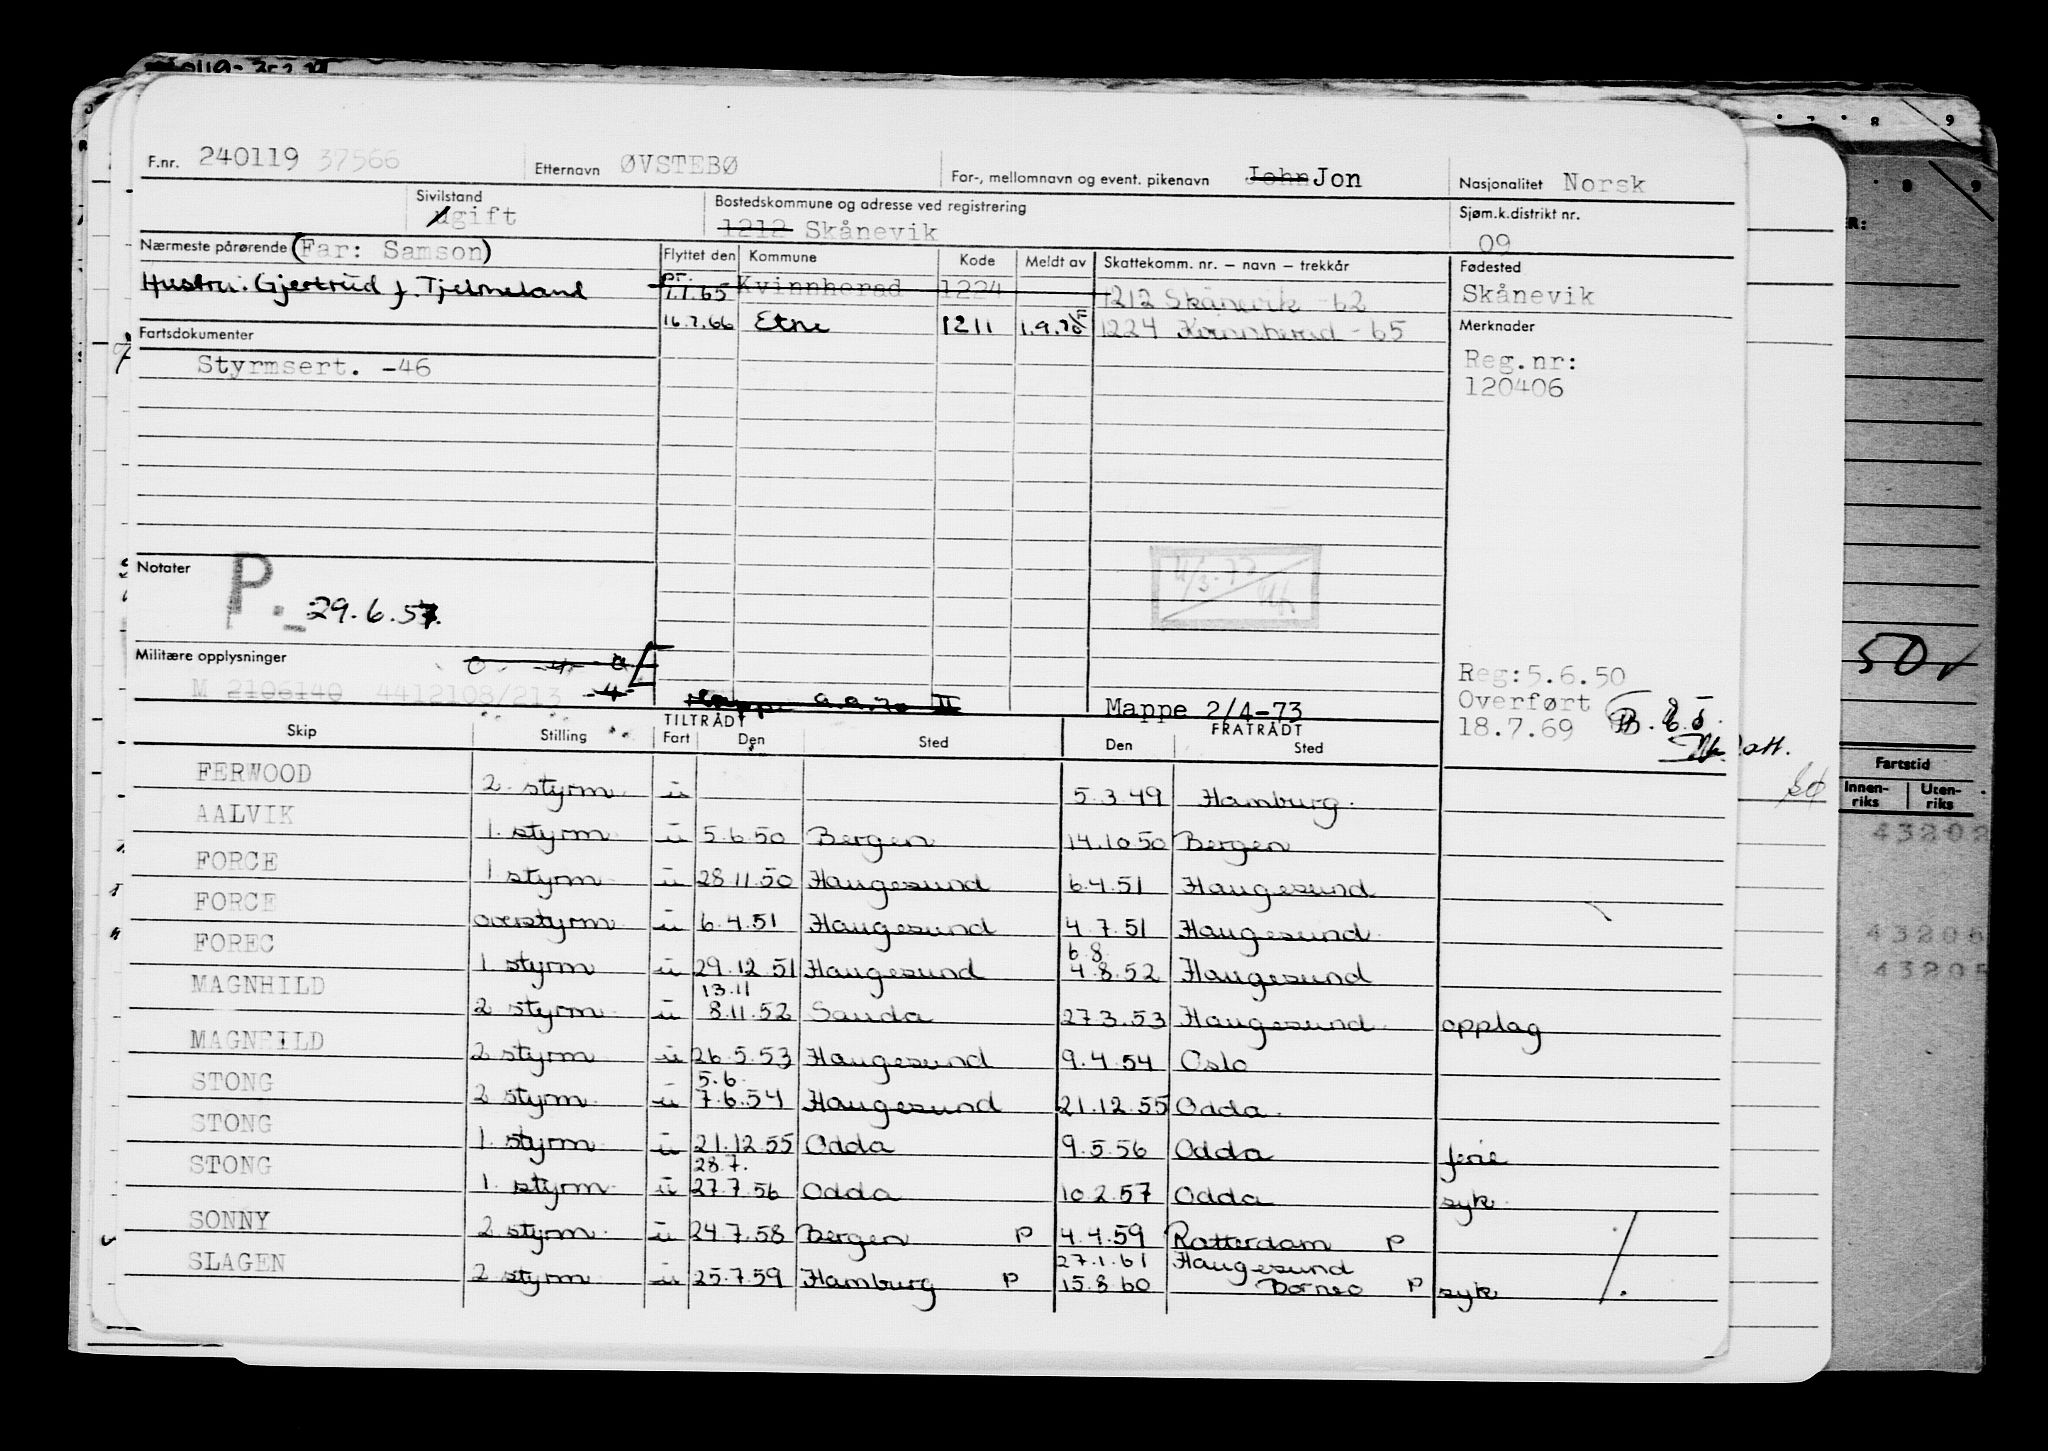 F.nr. 240119 37566 Etternavn ØVSTEBØ For-, mellomnavn og event. pikenavn John Jon Nasjonalitet Norsk
Sivilstand ugift Bostedskommune og adresse ved registrering 1212 Skånevik Sjøm.k.distrikt nr. 09
Nærmeste pårørende (Far: Samson) Flyttet den Kommune Kode Meldt av Skattekomm. nr. – navn – trekkår Fødested
Hustru: Gjertrud f. Tjelmeland pr. 1.1.65 Kvinnherad 1224 1212 Skånevik -62 Skånevik
16.7.66 Etne 1211 1.9.70 1224 Kvinnherad -65 Merknader
Fartsdokumenter
Styrmsert. -46 Reg.nr:
120406
Notater P. 29.6.57.
Militære opplysninger
M 2106140 4412108/213 -4-
Mappe 9.9.70 II Mappe 2/4-73
Reg:5.6.50
Overført
18.7.69
TILTRÅDT FRATRÅDT
Skip Stilling Fart Den Sted Den Sted
FERWOOD 2. styrm u 5.3.49 Hamburg.
AALVIK 1. styrm u 5.6.50 Bergen 14.10 50 Bergen
FORCE 1 styrm u 28 11.50 Haugesund 6.4.51 Haugesund
FORCE overstyrm u 6.4.51 Haugesund 4.7.51 Haugesund
6.8.
FOREC 1. styrm u 29.12.51 Haugesund 4.8.52 Haugesund
13.11
MAGNHILD 2 styrm u 8.11.52 Sauda 27.3.53 Haugesund opplag
MAGNEILD 2 styrm u 26.5.53 Haugesund 9.4.54 Oslo
5.6.
STONG 2 styrm u 7.6.54 Haugesund 21.12.55 Odda
STONG 1. styrm u 21.12.55 Odda 9.5.56 Odda ferie
28.7.
STONG 1. styrm u 27.7.56 Odda 10.2.57 Odda syk
SONNY 2 styrm u 24.7.58 Bergen P 4.4.59 Rotterdam P
27.1.61 Haugesund
SLAGEN 2 styrm u 25.7.59 Hamburg P 15.8 60 Borneo P syk
50
Fartstid
Innen-riks Uten-riks
43202
43206
43205